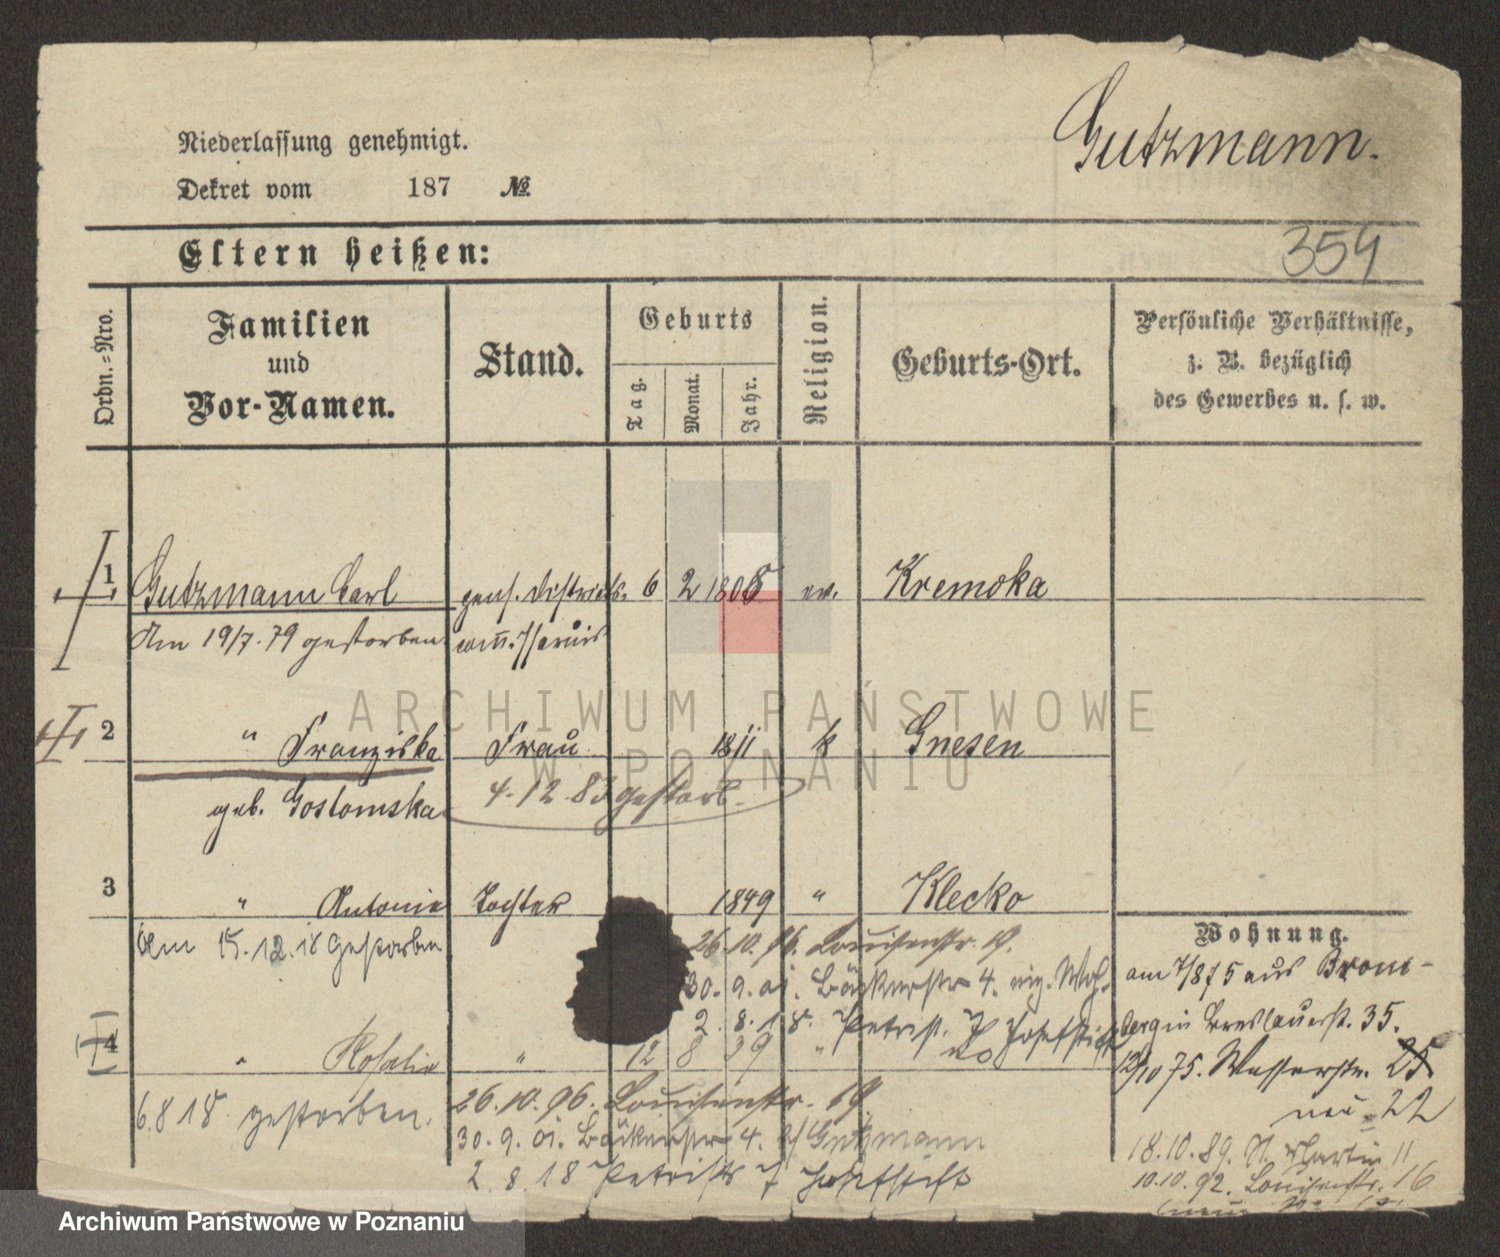 Niederlassung genehmigt.
Dekret vom 187 №
Gutzmann.
354
Eltern heißen:
Ordn.-Nro.
Familien
und
Vor-Namen.
Stand.
Geburts
Tag.
Monat.
Jahr.
Religion.
Geburts-Ort.
Persönliche Verhältnisse,
z. B. bezüglich
des Gewerbes u. s. w.
1 Gutzmann Carl pens. Districts- 6 2 1808 ev. Kremoka
Am 19/7. 79 gestorben commissarius
2 " Franziska Frau 1811 k Gnesen
geb. Gostomska 4. 12. 83 gestorb.
3 " Antonie Tochter 1849 " Klecko
Am 15. 12. 18 gestorben
26. 10. 96. Louisenstr. 19.
30. 9. 01. Bäckerstr 4. eig. Woh.
2. 8. 18. Petristr. 7 Josefstift
4 " Rosalie " 12 8 39 "
6. 8 18 gestorben.
26. 10. 96. Louisenstr. 19
30. 9. 01. Bäckerstr 4. b/ Gutzmann
2. 8. 18 Petristr 7 Josefstift
Wohnung.
am 7/875 aus Brom-
berg in Breslauerst. 35.
12/10 75. Wasserstr. 25
neu 22
18. 10. 89. St. Martin 11
10. 10. 92. Louisenstr. 16
ARCHIWUM PAŃSTWOWE
W POZNANIU
Archiwum Państwowe w Poznaniu